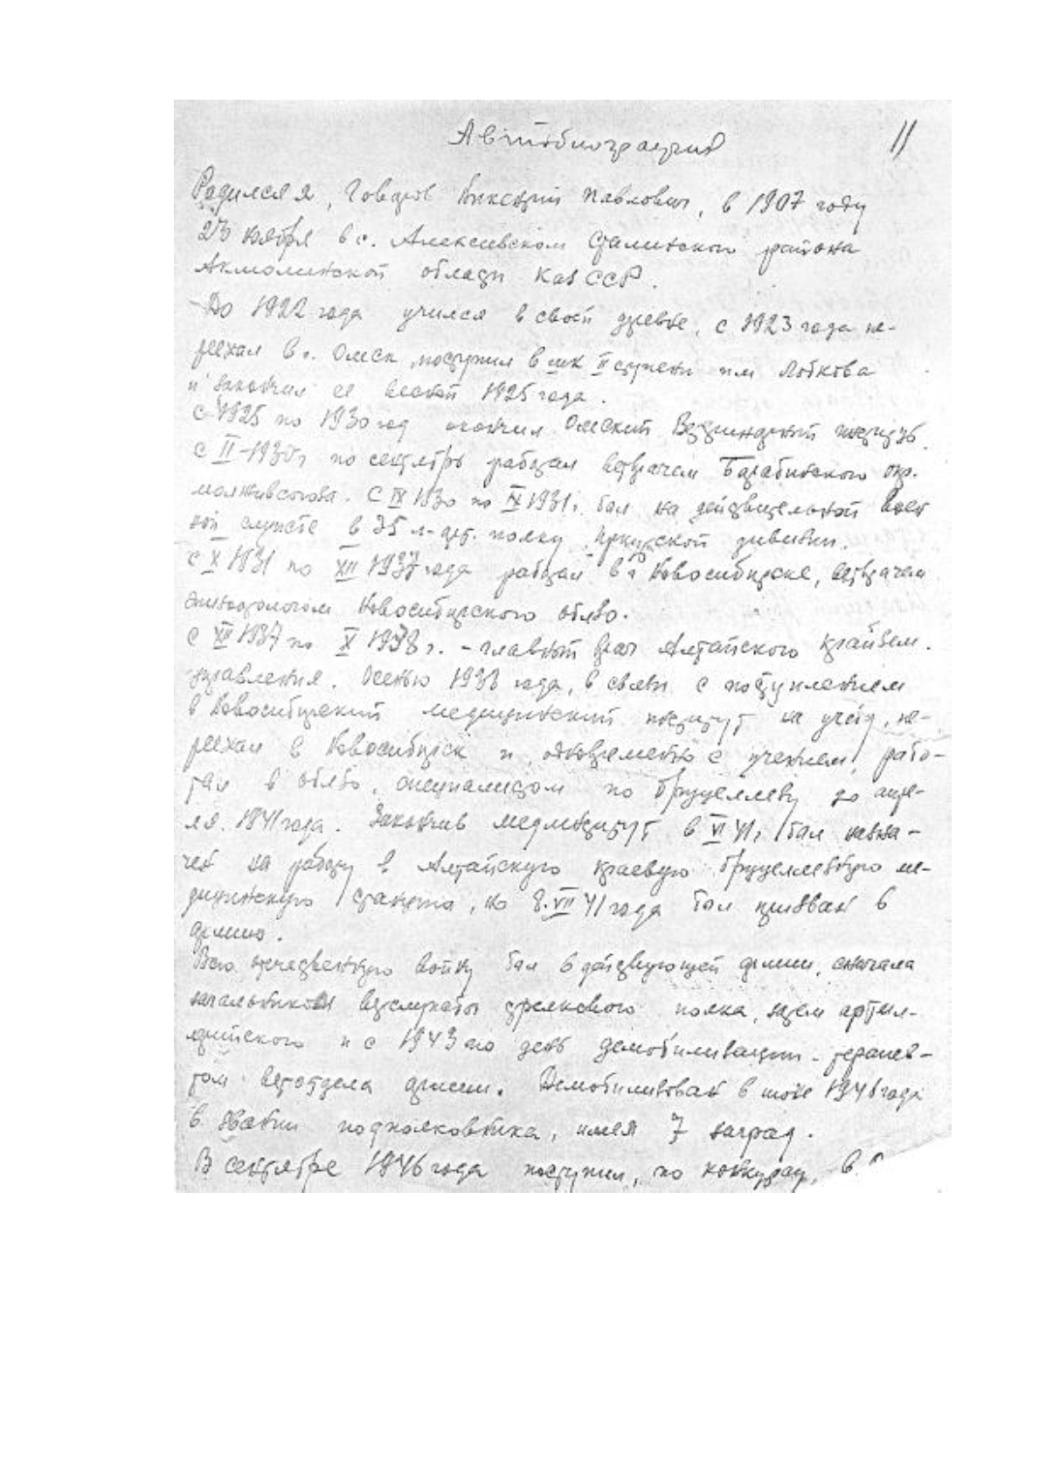 Автобиография 11
Родился я, Говоров Виктор Павлович, в 1907 году
23 ноября в с. Алексеевском Сталинского района
Акмолинской области КазССР.
До 1922 года учился в своей деревне, с 1923 года пе-
реехал в г. Омск, поступил в шк II ступени им Лобкова
и закончил ее весной 1925 года.
С 1925 по 1930 год окончил Омский Ветеринарный институт.
С II-1930 г по сентябрь работал ветврачем Барабинского окр.
молживсоюза. С IX 1930 по IX 1931 г. был на действительной воен
ной службе в 35 полку Иркутской дивизии.
С X 1931 по XII 1937 года работал в г Новосибирске, ветврачем
эпизоотологом Новосибирского облзо.
С XII 1937 по X 1938 г. - главный врач Алтайского крайзем.
управления. Осенью 1938 года, в связи с поступлением
в Новосибирский медицинский институт на учебу, пе-
реехал в Новосибирск и, одновременно с учением, рабо-
тал в облзо, специалистом по бруцеллезу до апре-
ля 1941 года. Закончив мединститут в VI 41 г был назна-
чен на работу в Алтайскую краевую бруцеллезную ме-
дицинскую станцию, но 8.VII 41 года был призван в
армию.
Всю отечественную войну был в действующей армии, сначала
начальником ветслужбы стрелкового полка, затем артил-
лерийского и с 1943 по день демобилизации - терапев-
том ветотдела армии. Демобилизован в июне 1946 года
в звании подполковника, имея 7 наград.
В сентябре 1946 года поступил, по конкурсу, в